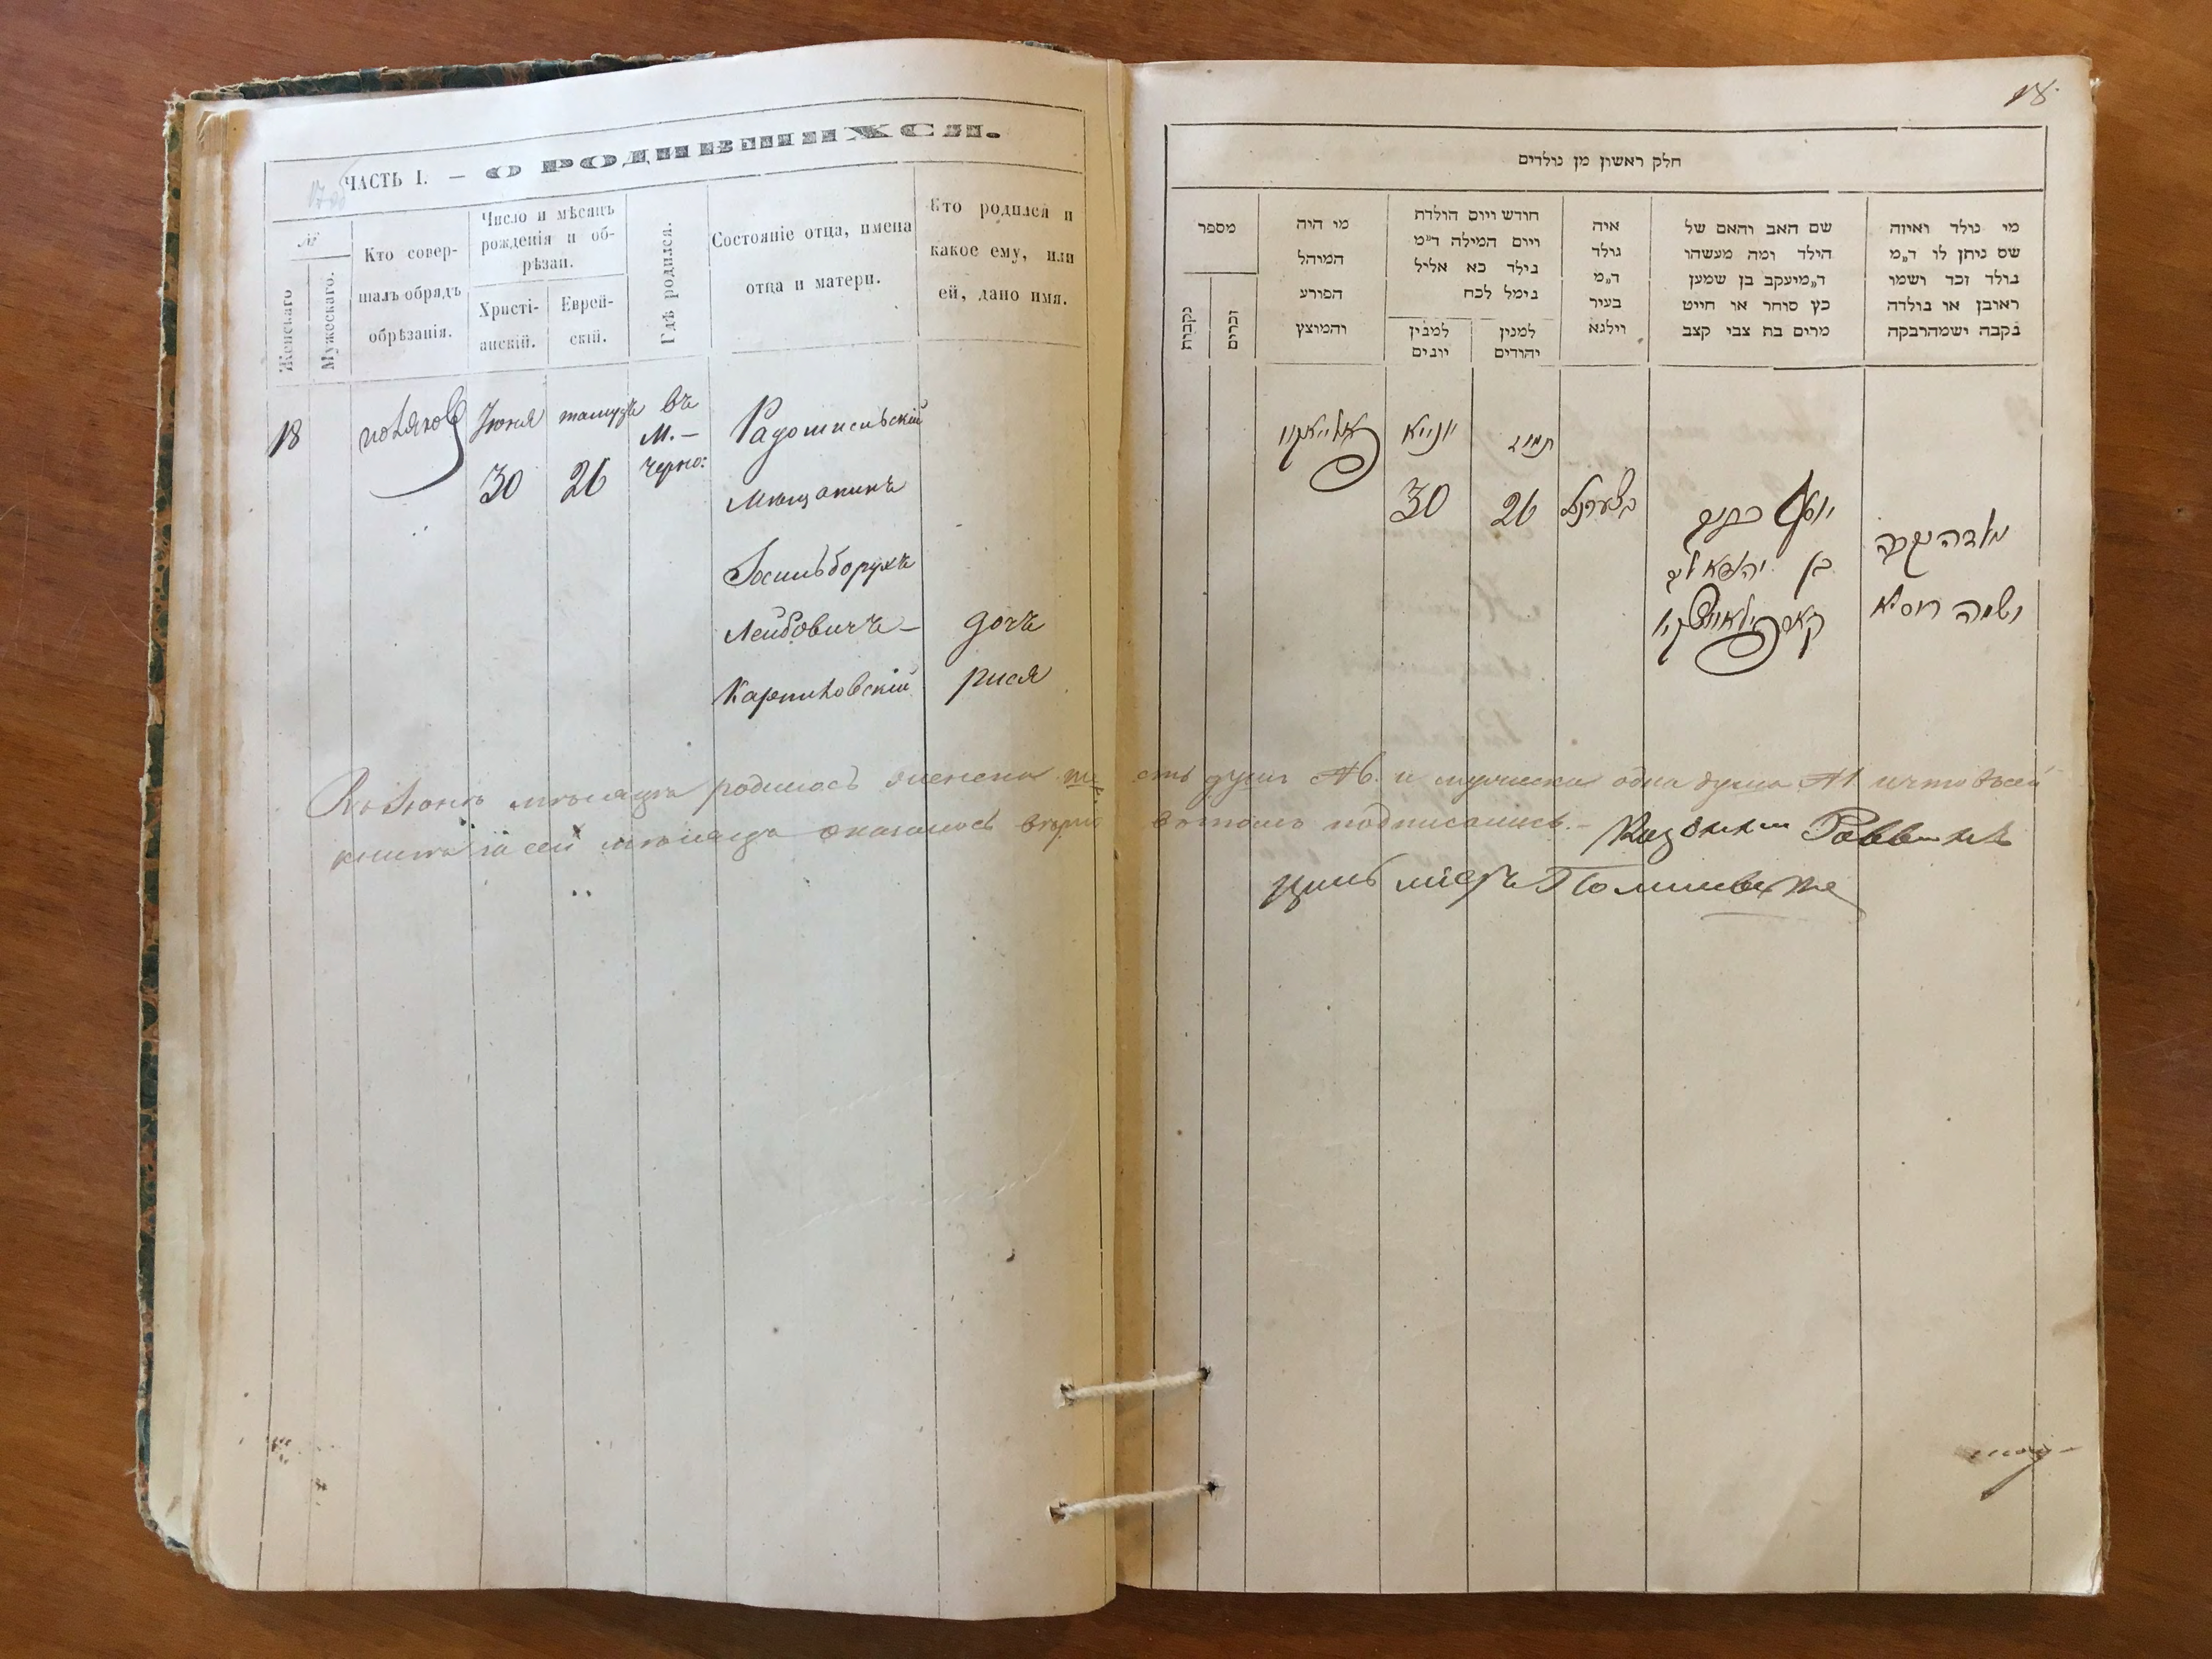 ЧАСТЬ I. — О РОДИВШИХСЯ.
№
Женскаго
Мужескаго.
Кто совер-
шалъ обрядъ
обрѣзанія.
Число и мѣсяцъ
рожденія и об-
рѣзан.
Христі-
анскій.
Еврей-
скій.
Гдѣ родился.
Состояніе отца, имена
отца и матери.
Кто родился и
какое ему, или
ей, дано имя.
18
Июня
30
тамузъ
26
въ
м.—
черно:
Радошисльскій
Мѣщанинъ
Іосильборухъ
Лейбовичъ—
Карпиловскій
дочь
рися
18
חלק ראשון מן נולדים
מספר
נקבות
זכרים
מי היה
המוהל
הפורע
והמוצץ
חודש ויום הולדת
ויום המילה ד״מ
נילד כא אליל
נימל לכח
למנין
יונים
למנין
יהודים
איה
נולד
ד״מ
בעיר
וילנא
שם האב והאם של
הילד ומה מעשהו
ד״מ יעקב בן שמען
כץ סוחר או חייט
מרים בת צבי קצב
מי נולד ואיזה
שם ניתן לו ד״מ
נולד זכר ושמו
ראובן או נולדה
נקבה ישמהרבקה
יונייא
30
תמוז
26
יוסף
בן
ושמה
Въ Іюнѣ мѣсяцѣ родилось женска ше сть душъ №6. и мужеска одна душа №1 и что въ сей
книгѣ за сей мѣсяцъ оказалось вѣрно въ томъ подписались.— Казенный Раввинъ